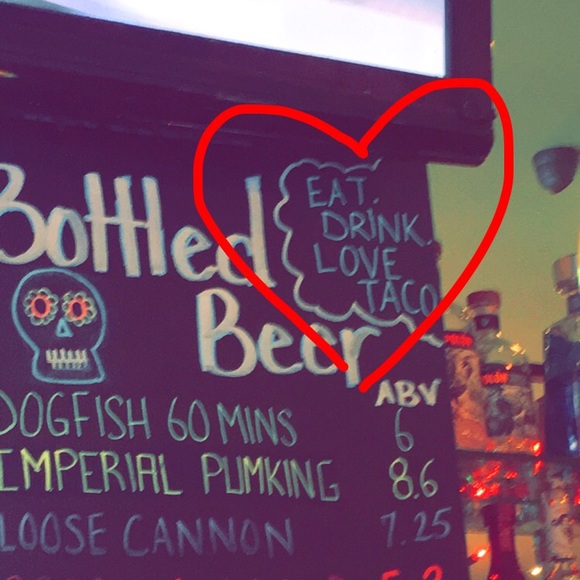 Bottled
Beer
EAT.
DRINK.
LOVE
TACO
ABV
DOGFISH 60 MINS 6
IMPERIAL PUMKING 8.6
LOOSE CANNON 7.25